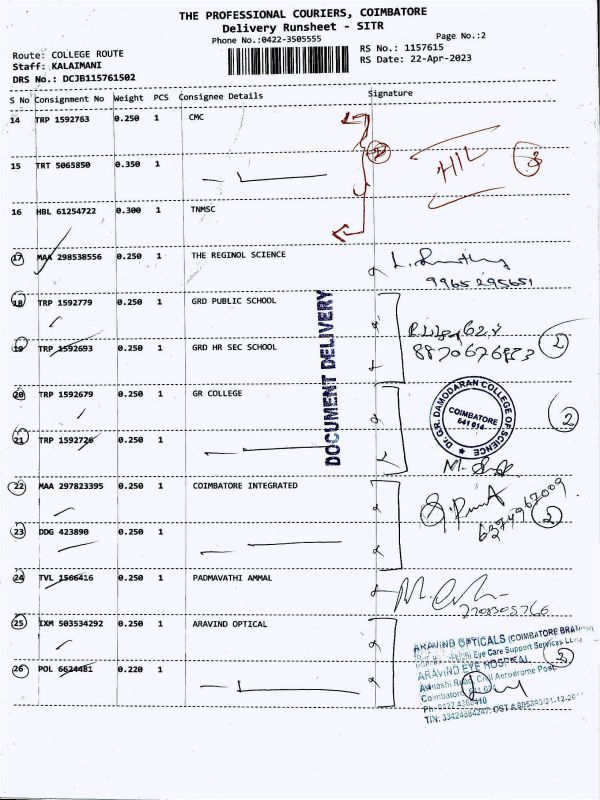 THE PROFESSIONAL COURIERS, COIMBATORE
Delivery Runsheet - SITR
Phone No.:0422-3505555
Page No.:2
Route: COLLEGE ROUTE
RS No.: 1157615
Staff: KALAIMANI
RS Date: 22-Apr-2023
DRS No.: DCJB115761502
S No Consignment No Weight PCS Consignee Details Signature
14 TRP 1592763 0.250 1 CMC
15 TRT 5065850 0.350 1
HIL 3
16 HBL 61254722 0.300 1 TNMSC
17 MAA 298538556 0.250 1 THE REGINOL SCIENCE
9965295651
18 TRP 1592779 0.250 1 GRD PUBLIC SCHOOL
19 TRP 1592693 0.250 1 GRD HR SEC SCHOOL
2
DOCUMENT DELIVERY
20 TRP 1592679 0.250 1 GR COLLEGE
Dr. G.R. DAMODARAN COLLEGE OF SCIENCE
COIMBATORE
641 014
2
21 TRP 1592726 0.250 1
22 MAA 297823395 0.250 1 COIMBATORE INTEGRATED
6374962009
2
23 DDG 423890 0.250 1
24 TVL 1566416 0.250 1 PADMAVATHI AMMAL
25 IXM 503534292 0.250 1 ARAVIND OPTICAL
ARAVIND OPTICALS (COIMBATORE BRANCH)
Eye Care Support Services LLP
ARAVIND EYE HOSPITAL
Avinashi Road, Civil Aerodrome Post,
Coimbatore
2
26 POL 6624481 0.220 1